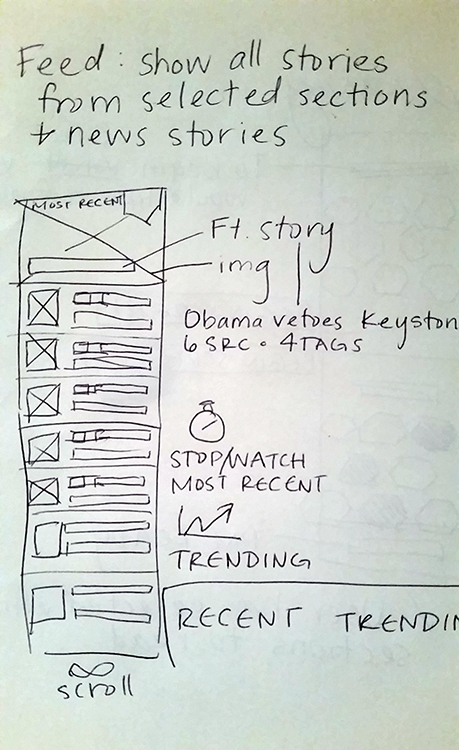 Feed: show all stories
from selected sections
+ news stories
MOST RECENT
Ft. story
img
Obama vetoes Keyston
6 SRC • 4 TAGS
STOP/WATCH
MOST RECENT
TRENDING
RECENT TRENDIN
scroll